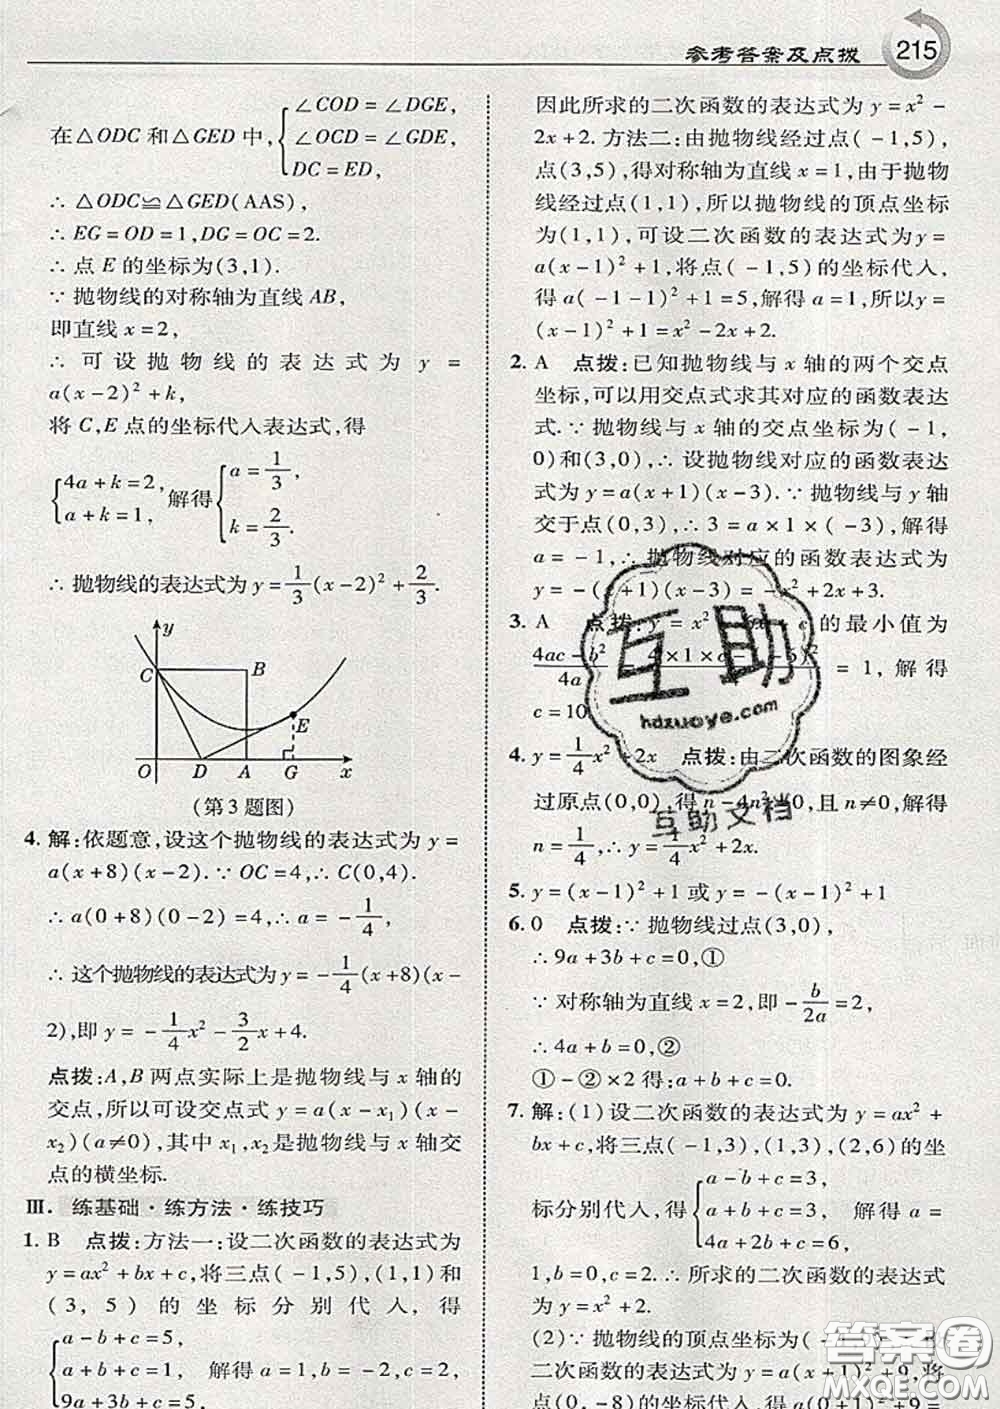 参考答案及点拨 215
在△ODC和△GED中,{∠COD=∠DGE,
∠OCD=∠GDE,
DC=ED,
∴△ODC≌△GED(AAS),
∴EG=OD=1,DG=OC=2.
∴点E的坐标为(3,1).
∵抛物线的对称轴为直线AB,
即直线x=2,
∴可设抛物线的表达式为y=
a(x-2)²+k,
将C,E点的坐标代入表达式,得
{4a+k=2, a+k=1, 解得{a=1/3, k=2/3.
∴抛物线的表达式为y=1/3(x-2)²+2/3.
y
C B
E
O D A G x
(第3题图)
4.解:依题意,设这个抛物线的表达式为y=
a(x+8)(x-2).∵OC=4,∴C(0,4).
∴a(0+8)(0-2)=4,∴a=-1/4,
∴这个抛物线的表达式为y=-1/4(x+8)(x-
2),即y=-1/4x²-3/2x+4.
点拨:A,B两点实际上是抛物线与x轴的
交点,所以可设交点式y=a(x-x₁)(x-
x₂)(a≠0),其中x₁,x₂是抛物线与x轴交
点的横坐标.
Ⅲ.练基础·练方法·练技巧
1.B 点拨:方法一:设二次函数的表达式为
y=ax²+bx+c,将三点(-1,5),(1,1)和
(3,5)的坐标分别代入,得
{a-b+c=5,
a+b+c=1, 解得a=1,b=-2,c=2,
9a+3b+c=5,
因此所求的二次函数的表达式为y=x²-
2x+2.方法二:由抛物线经过点(-1,5),
点(3,5),得对称轴为直线x=1,由于抛物
线经过点(1,1),所以抛物线的顶点坐标
为(1,1),可设二次函数的表达式为y=
a(x-1)²+1,将点(-1,5)的坐标代入,
得a(-1-1)²+1=5,解得a=1,所以y=
(x-1)²+1=x²-2x+2.
2.A 点拨:已知抛物线与x轴的两个交点
坐标,可以用交点式求其对应的函数表达
式.∵抛物线与x轴的交点坐标为(-1,
0)和(3,0),∴设抛物线对应的函数表达
式为y=a(x+1)(x-3).∵抛物线与y轴
交于点(0,3),∴3=a×1×(-3),解得
a=-1,∴抛物线对应的函数表达式为
y=-(x+1)(x-3)=-x²+2x+3.
3.A 点拨:y=x² 6x+c的最小值为
4ac-b²/4a = 4×1×c-(-6)² =1,解得
c=10
4.y=1/4x²+2x 点拨:由二次函数的图象经
过原点(0,0),得n-4n²=0,且n≠0,解得
n=1/4,∴y=1/4x²+2x.
5.y=(x-1)²+1或y=-(x-1)²+1
6.0 点拨:∵抛物线过点(3,0),
∴9a+3b+c=0,①
∵对称轴为直线x=2,即-b/2a=2,
∴4a+b=0,②
①-②×2得:a+b+c=0.
7.解:(1)设二次函数的表达式为y=ax²+
bx+c,将三点(-1,3),(1,3),(2,6)的坐
标分别代入,得{a-b+c=3,
a+b+c=3, 解得a=
4a+2b+c=6,
1,b=0,c=2.∴所求的二次函数的表达式
为y=x²+2.
(2)∵抛物线的顶点坐标为(
二次函数的表达式为y=a(x+1)²+9,将
点(0,-8)的坐标代入,得a(0+1)²+9=
互助
hdzuoye.com
互助文档
答案圈
MXQE.COM